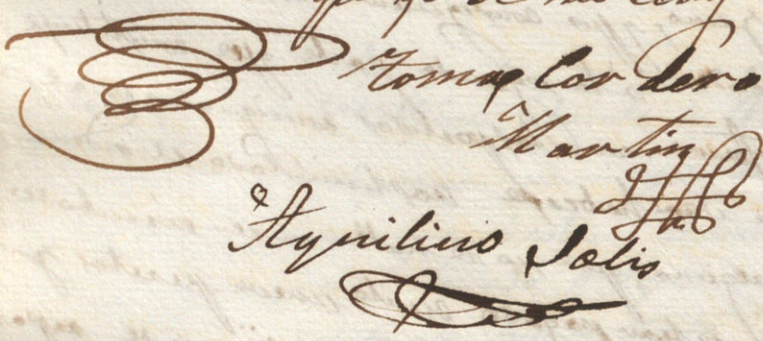 tomas Cordero
Martin
Aquilino Solis